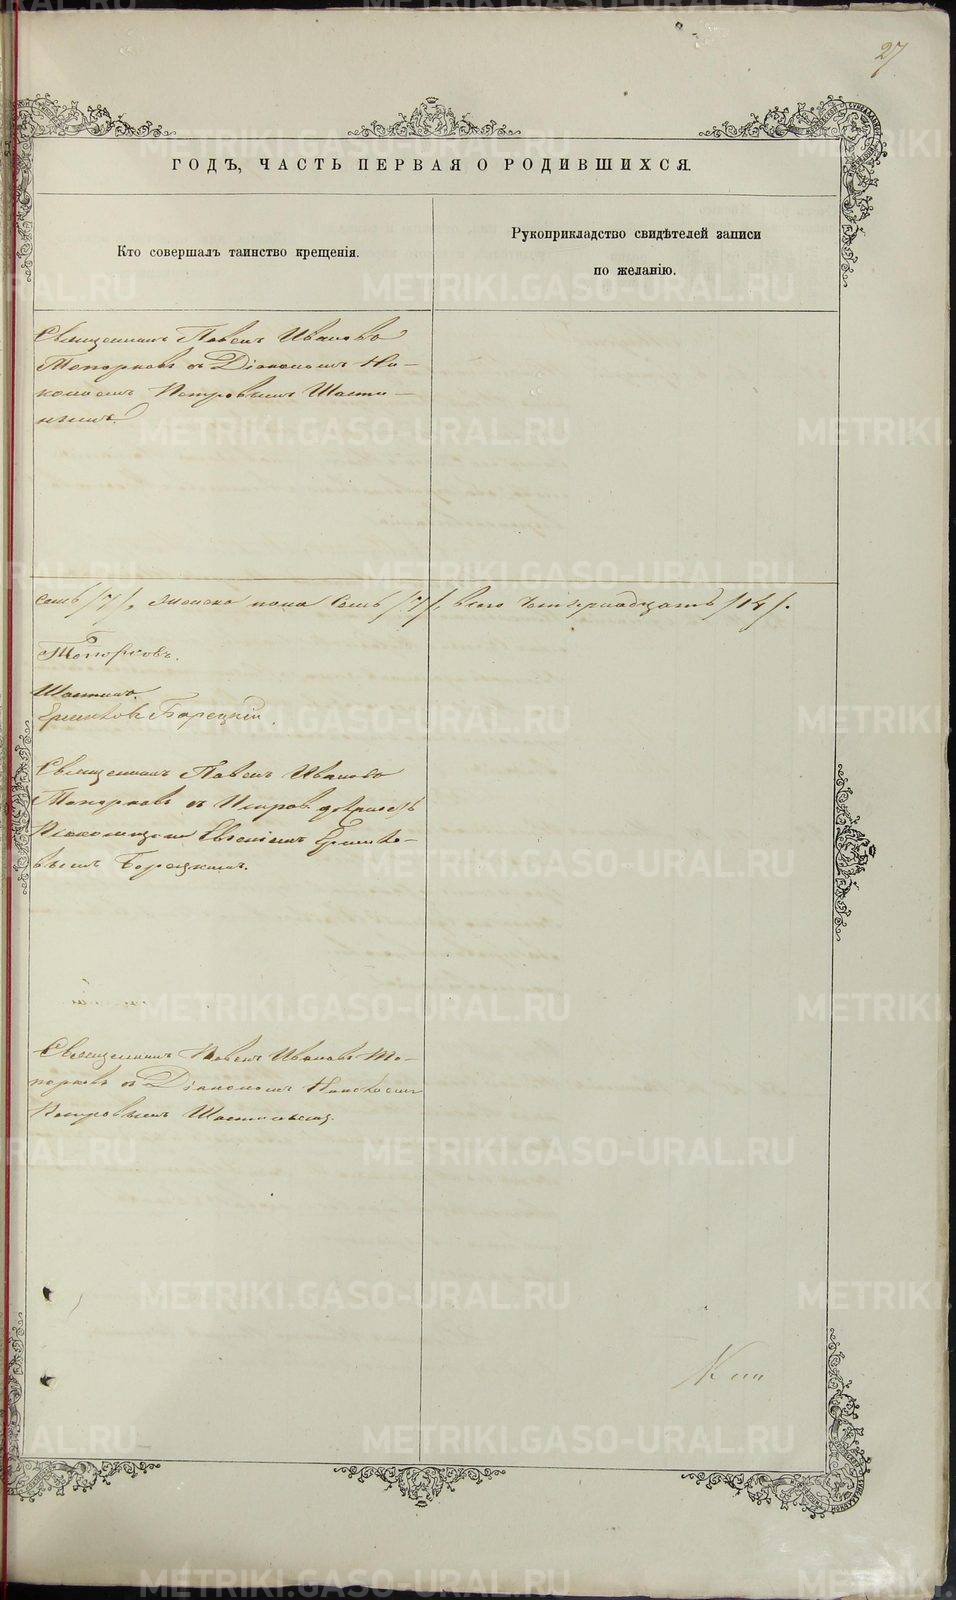 27
ГОДЪ, ЧАСТЬ ПЕРВАЯ О РОДИВШИХСЯ.
Кто совершалъ таинство крещенія.
Рукоприкладство свидѣтелей записи
по желанію.
Священникъ Павелъ Ивановъ
Топорковъ съ Діакономъ
Петровымъ
семь /7/, женска пола семь /7/, всего четырнадцать /14/.
Топорковъ.
Борецкій.
Священникъ Павелъ Ивановъ
Топорковъ съ
Псаломщика Евгеніемъ
Борецкимъ.
Священникъ Павелъ Ивановъ То-
порковъ съ Діакономъ
Петровымъ
METRIKI.GASO-URAL.RU